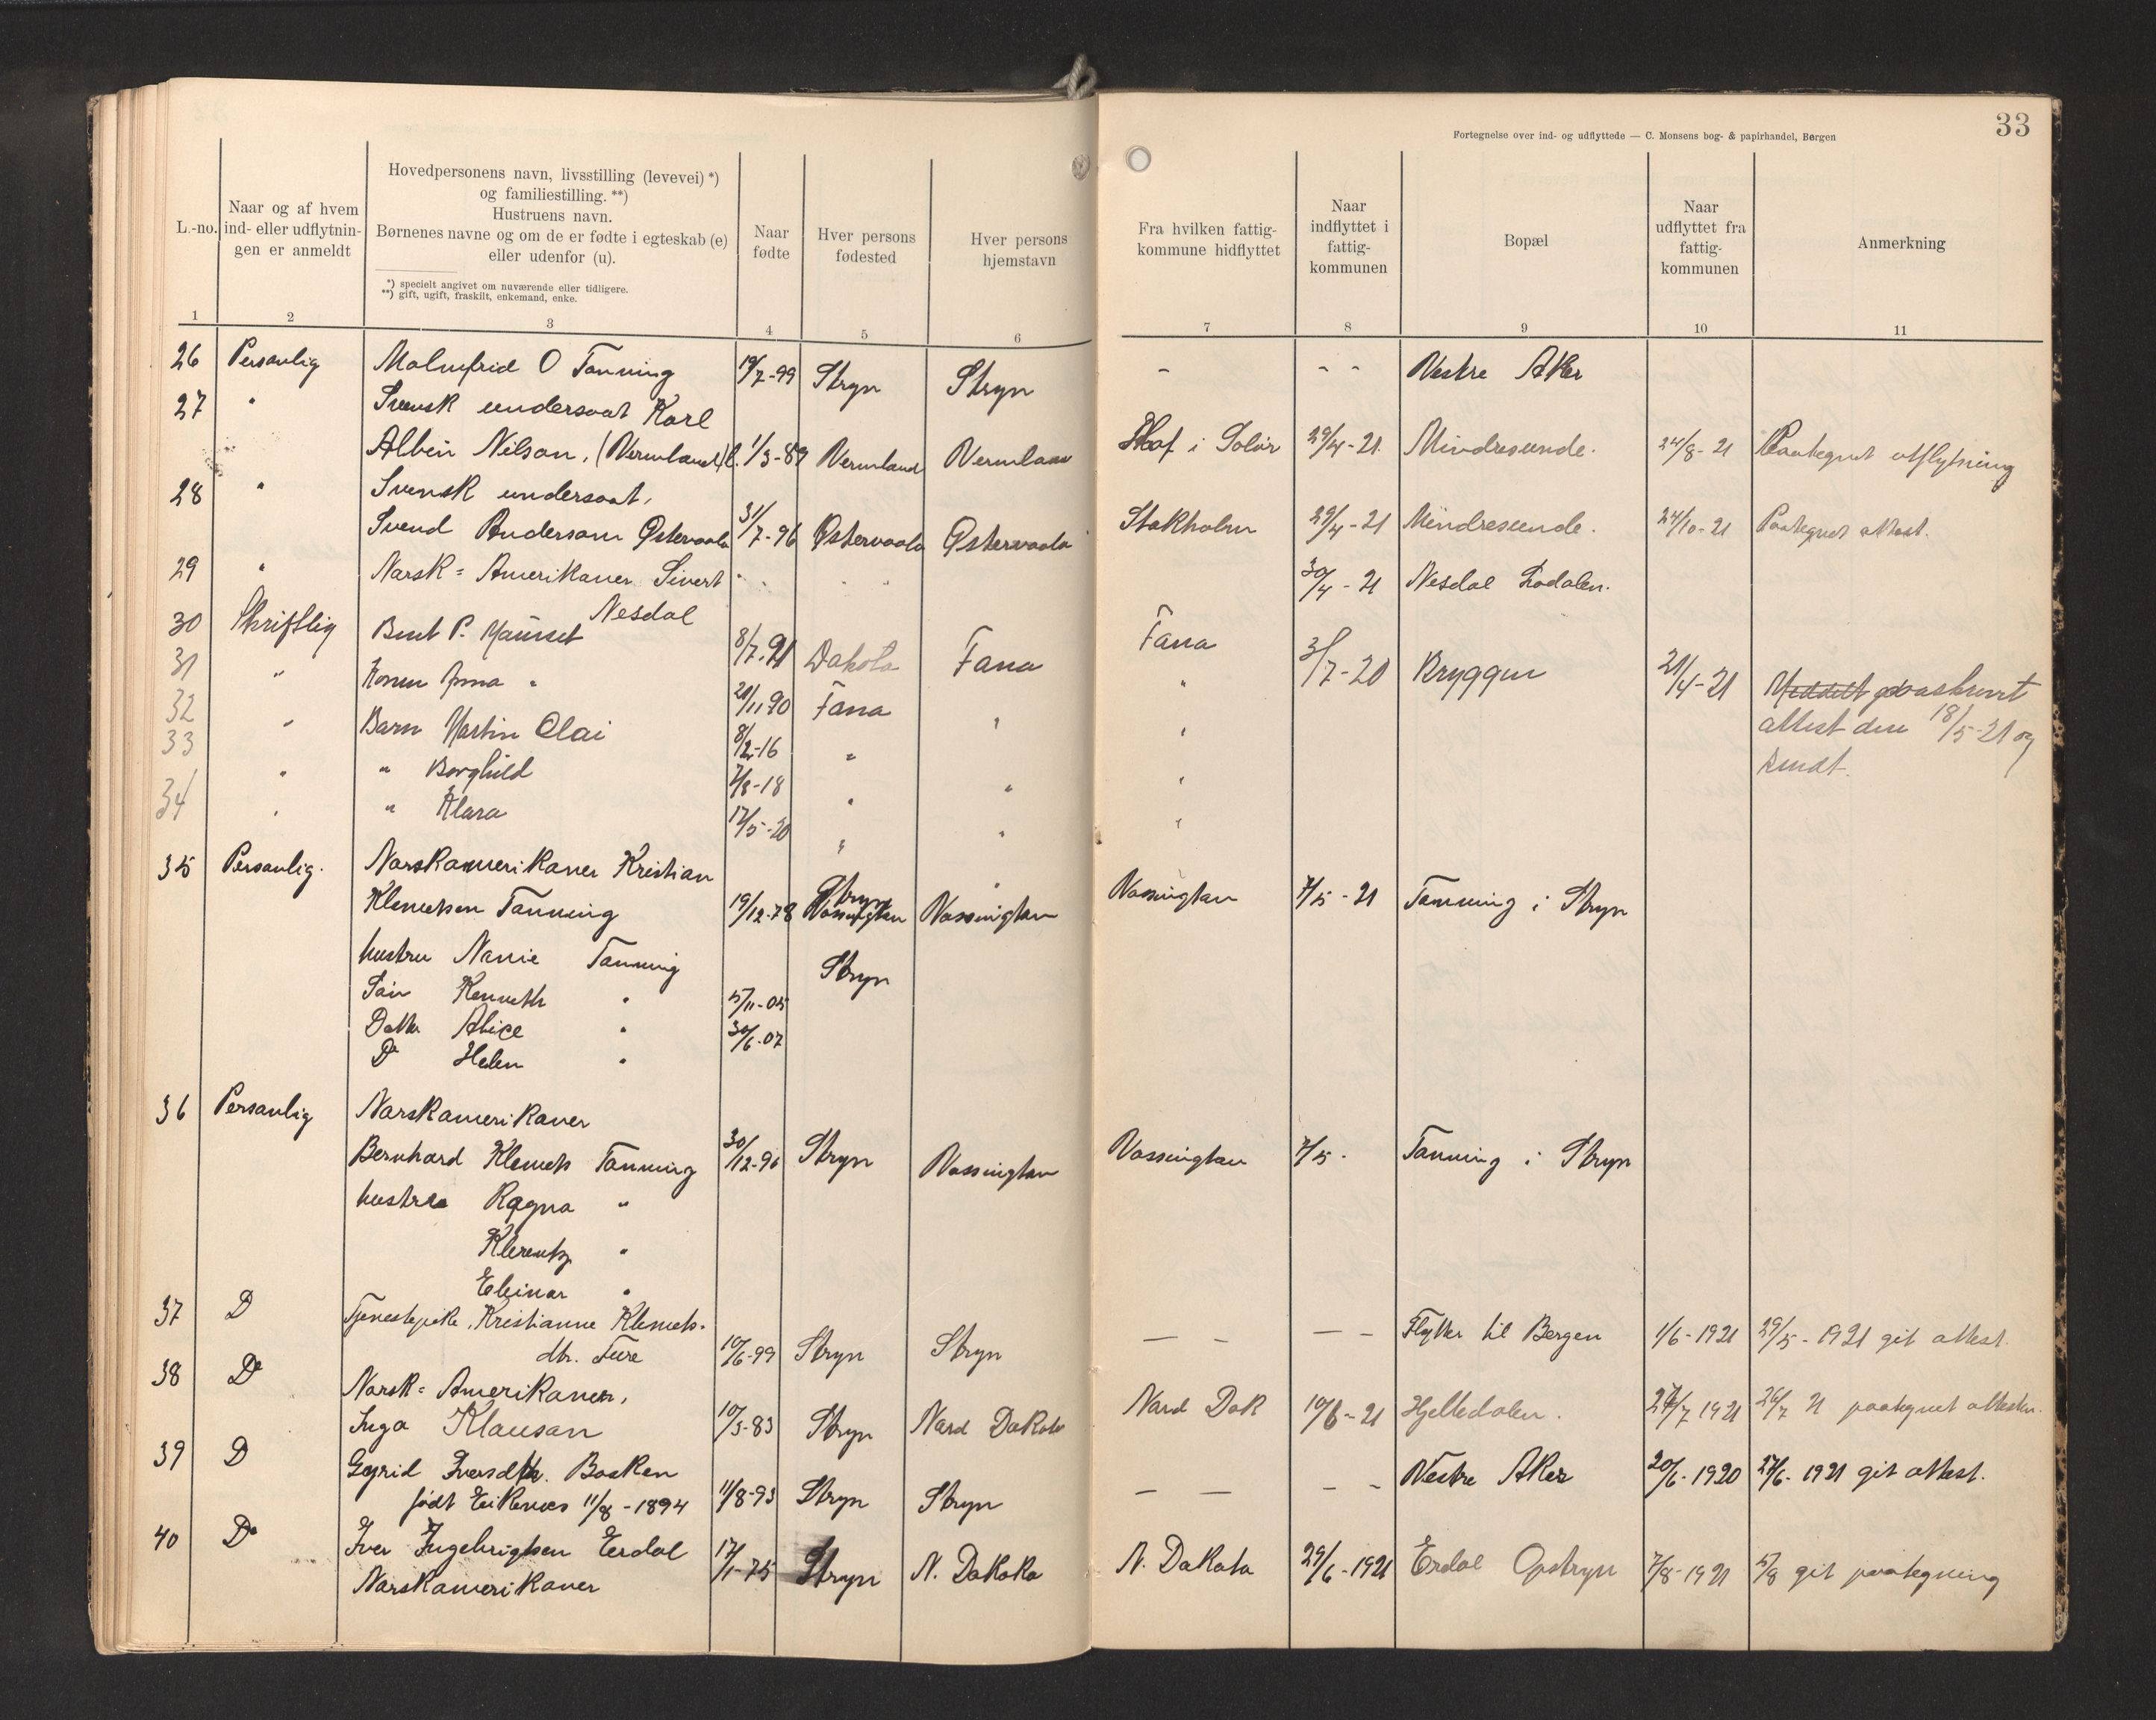 33
Fortegnelse over ind- og udflyttede — C. Monsens bog- & papirhandel, Bergen
L.-no.
Naar og af hvem
ind- eller udflytnin-
gen er anmeldt
Hovedpersonens navn, livsstilling (levevei) *)
og familiestilling. **)
Hustruens navn.
Børnenes navne og om de er fødte i egteskab (e)
eller udenfor (u).
*) specielt angivet om nuværende eller tidligere.
**) gift, ugift, fraskilt, enkemand, enke.
Naar
fødte
Hver persons
fødested
Hver persons
hjemstavn
Fra hvilken fattig-
kommune hidflyttet
Naar
indflyttet i
fattig-
kommunen
Bopæl
Naar
udflyttet fra
fattig-
kommunen
Anmerkning
1 2 3 4 5 6 7 8 9 10 11
26 Personlig Malmfrid O Tonning 19/7-99 Stryn Stryn - - - Vestre Aker
27 " Svensk undersaat Karl
Albin Nilson, (Vermland) 1/3-89 Vermland Vermland Hof i Solør 29/4-21. Mindresunde. 24/8-21 Paategnet utflytning
28 " Svensk undersaat,
Svend Anderson Østervaala 31/7-96 Østervaala Østervaala Stokholm 29/4-21 Mindresunde. 24/10-21 Paategnet attest.
29 " Norsk=Amerikaner Sivert 30/4-21 Nesdal Lodalen.
Nesdal
30 Skriftlig Bent P. Maurset 8/7.91 Dakota Fana Fana 31/7-20 Bryggen 21/4-21 Meddelt paaskrevet
31 " Konen Anna " 20/11 90 Fana "
32 " Barn Martin Olai 8/2-16 " " " attest den 18/5-21 og
33 " " Borghild 7/8-18 " " " sendt.
34 " " Klara 17/5-20 " " "
35 Personlig. Norskamerikaner Kristian
Klemetsen Tonning 19/12-78 Stryn Vassingtan Vassingtan Vassingtan 7/5-21 Tonning i Stryn
hustru Nanie Tonning Stryn
Søn Kenneth " 5/11-05
Dattr Alice " 30/6-07
Do Helen "
36 Personlig Norskamerikaner
Bernhard Klemets Tonning 30/12-96 Stryn Vassingtan Vassingtan 7/5. Tonning i Stryn
hustru Ragna "
Klements "
Eleinar "
37 D Tjenestepike, Kristianne Klemets-
dtr. Ture 10/6-99 Stryn Stryn — - — - Flytter til Bergen 1/6-1921 29/5-1921 git attest.
38 Do Norsk=Amerikaner,
Inga Klausan 10/3-83 Stryn Nord Dakota Nord Dak 10/6-21 Hjelledalen. 27/7 1921 26/7 21 paategnet attesten.
39 D Gyrid Iversdtr. Basken
født Eikenes 11/8-1894 11/8-93 Stryn Stryn — — - - Vestre Aker 20/6-1920 27/6-1921 git attest.
40 Do Iver Ingebrigtsen Erdal 17/1-75 Stryn N. Dakota N. Dakota 29/6-1921 Erdal Opstryn 7/8-1921 5/8 git paategning
Norskamerikaner